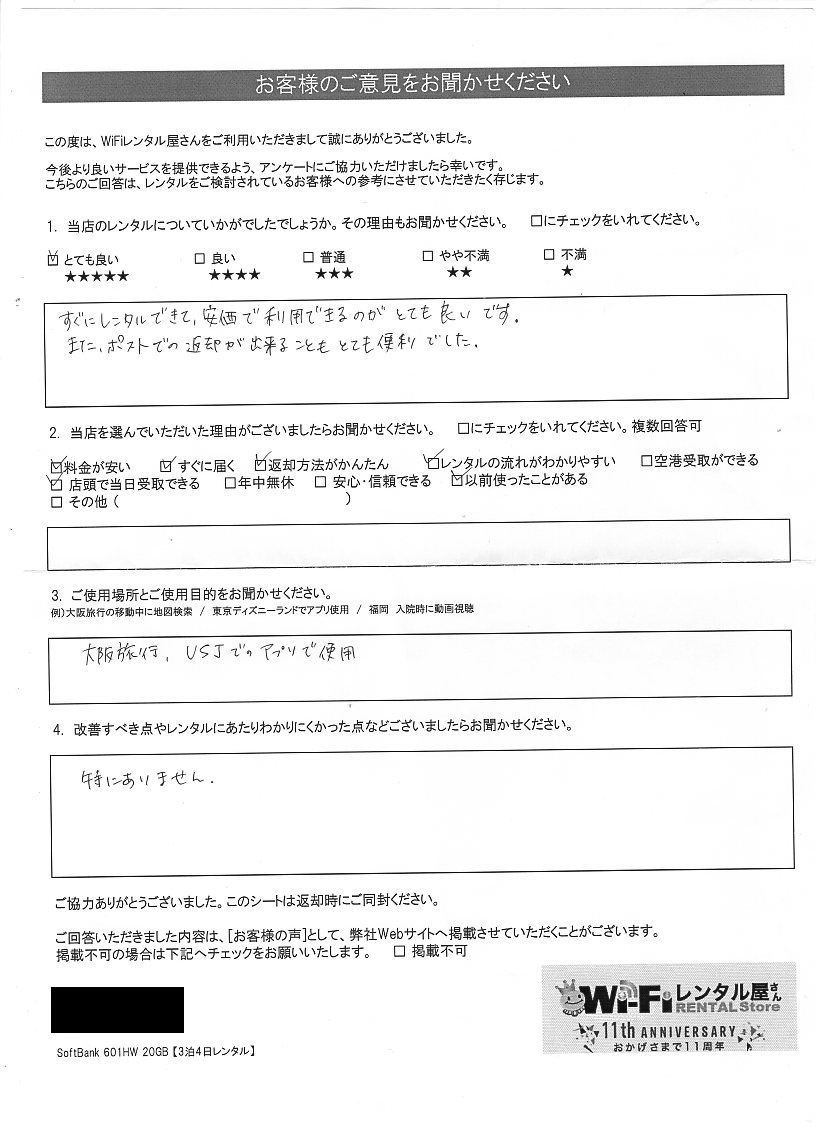 お客様のご意見をお聞かせください
この度は、WiFiレンタル屋さんをご利用いただきまして誠にありがとうございました。
今後より良いサービスを提供できるよう、アンケートにご協力いただけましたら幸いです。
こちらのご回答は、レンタルをご検討されているお客様への参考にさせていただきたく存じます。
1. 当店のレンタルについていかがでしたでしょうか。その理由もお聞かせください。 □にチェックをいれてください。
☑ とても良い □ 良い □ 普通 □ やや不満 □ 不満
★★★★★ ★★★★ ★★★ ★★ ★
すぐにレンタルできて、安価で利用できるのがとても良いです。
また、ポストでの返却が出来ることもとても便利でした。
2. 当店を選んでいただいた理由がございましたらお聞かせください。 □にチェックをいれてください。複数回答可
☑料金が安い ☑すぐに届く ☑返却方法がかんたん ☑レンタルの流れがわかりやすい □空港受取ができる
☑ 店頭で当日受取できる □年中無休 □ 安心・信頼できる ☑以前使ったことがある
□ その他 ( )
3. ご使用場所とご使用目的をお聞かせください。
例)大阪旅行の移動中に地図検索 / 東京ディズニーランドでアプリ使用 / 福岡 入院時に動画視聴
大阪旅行、USJでのアプリで使用
4. 改善すべき点やレンタルにあたりわかりにくかった点などございましたらお聞かせください。
特にありません.
ご協力ありがとうございました。このシートは返却時にご同封ください。
ご回答いただきました内容は、[お客様の声]として、弊社Webサイトへ掲載させていただくことがございます。
掲載不可の場合は下記へチェックをお願いいたします。 □ 掲載不可
Wi-Fiレンタル屋さん
RENTAL Store
11th ANNIVERSARY
おかげさまで11周年
SoftBank 601HW 20GB【3泊4日レンタル】